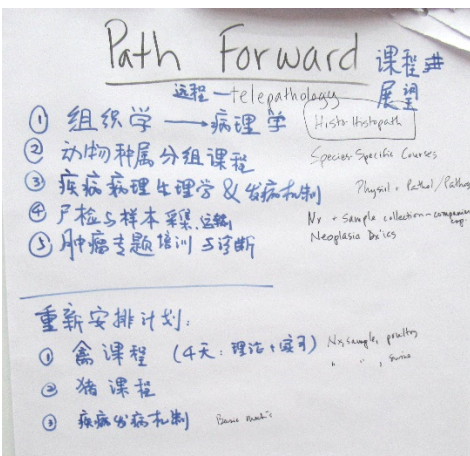 Path Forward 课程
展望
远程 — telepathology
① 组织学 → 病理学 Histo Histopath
② 动物种属分组课程 Species Specific Courses
③ 疾病病理生理学 & 发病机制 Physiol + Pathol / Patho
④ 尸检与样本采集.运输 Nx + sample collection
⑤ 肿瘤专题培训与诊断 Neoplasia Dx'ics
重新安排计划:
① 禽课程 (4天: 理论+实习) Nx, sample, poultry
② 猪课程 " " , swine
③ 疾病发病机制 Basic